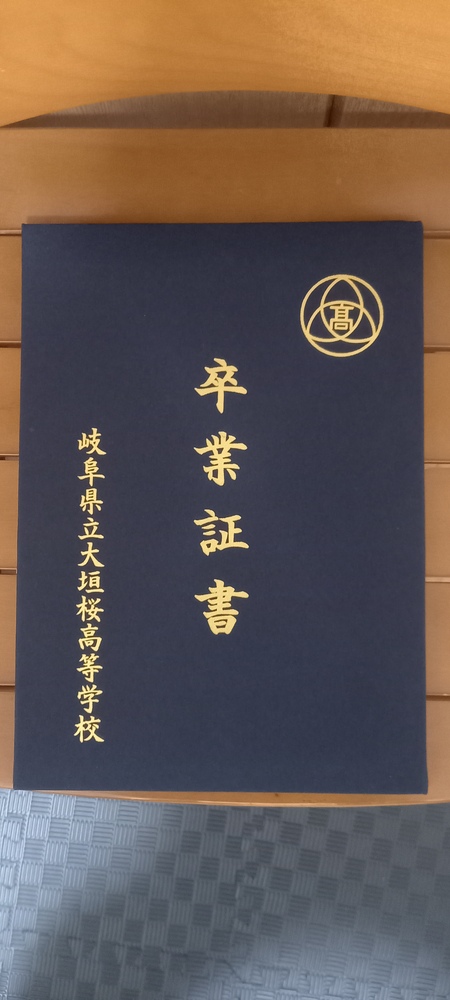 髙
卒業証書
岐阜県立大垣桜高等学校